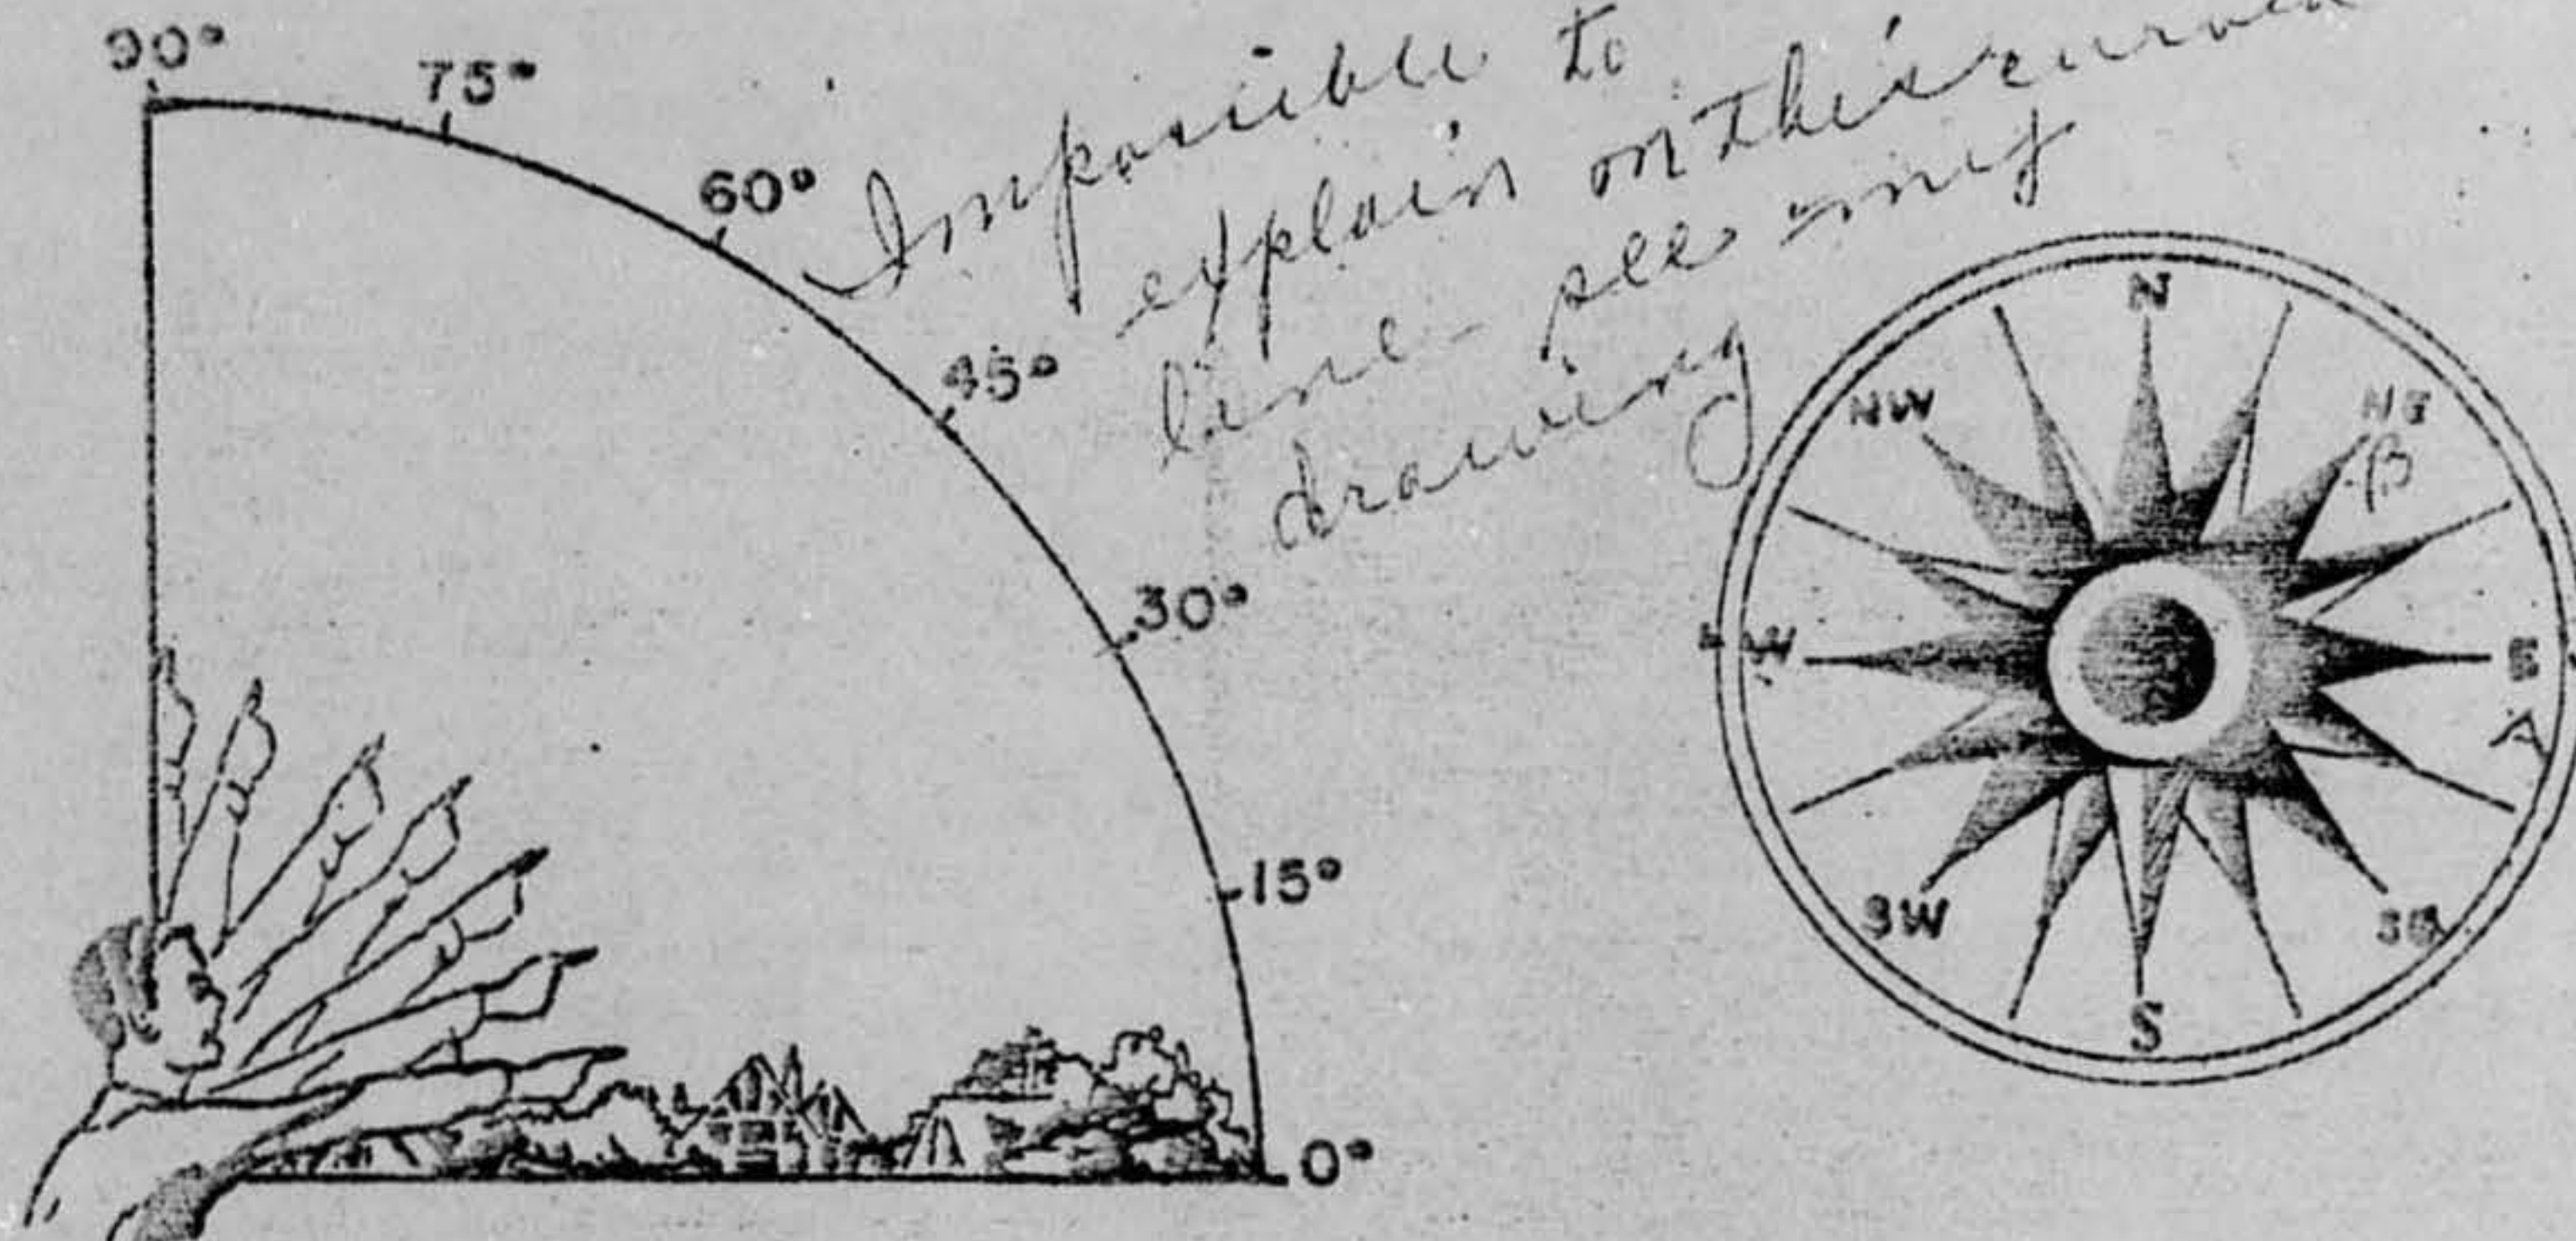 90°
75°
60°
45°
30°
15°
0°
Impossible to
explain on this curved
line - see my
drawing
N
NW
NE
B
W
E
A
SW
SE
S